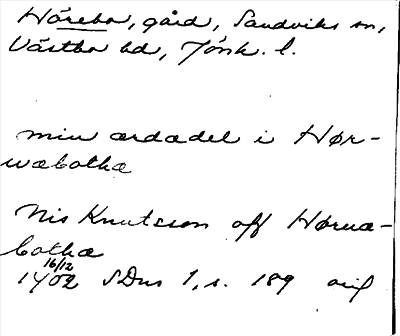 Hörebo, gård, Sandviks sn,
Västbo hd, Jönk. l.
min ærdædel i Hør-
wæbothæ
Nis Knutsson off Høruæ-
bothæ
16/12
1402 SDns 1, s. 189 orig